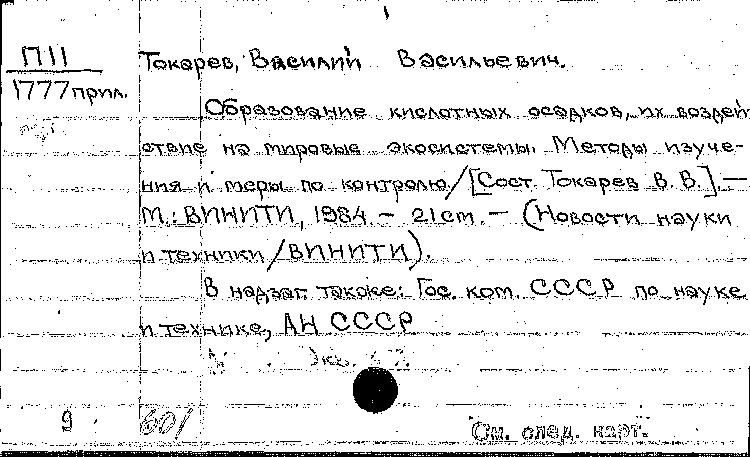 П11
1777 прил.
Токарев, Василий Васильевич.
Образование кислотных осадков, их воздей
ствие на мировые экосистемы. Методы изуче-
ния и меры по контролю/[Сост. Токарев В. В.].—
М.: ВИНИТИ, 1984. – 21 см. – (Новости науки
и техники/ВИНИТИ).
В надзаг. также: Гос. ком. СССР по науке
и технике, АН СССР
9 601
См. след. карт.